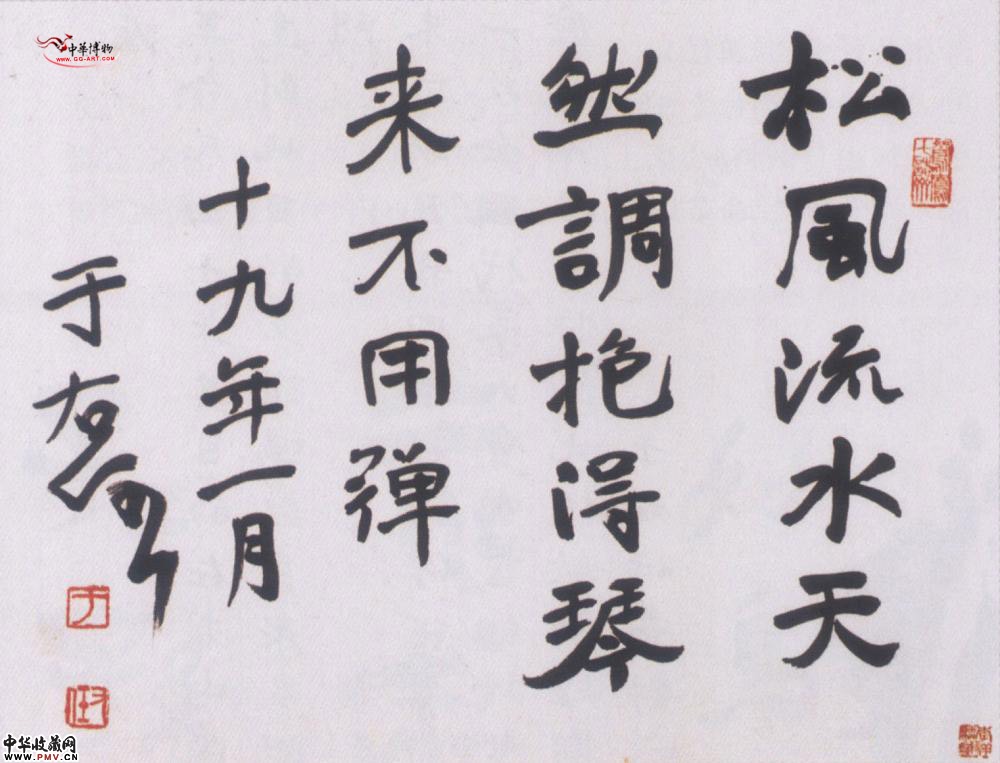 松風流水天
然調抱得琴
来不用弹
十九年一月
于右任
右
任
中華博物
WWW.GG-ART.COM
中华收藏网
WWW.PMV.CN